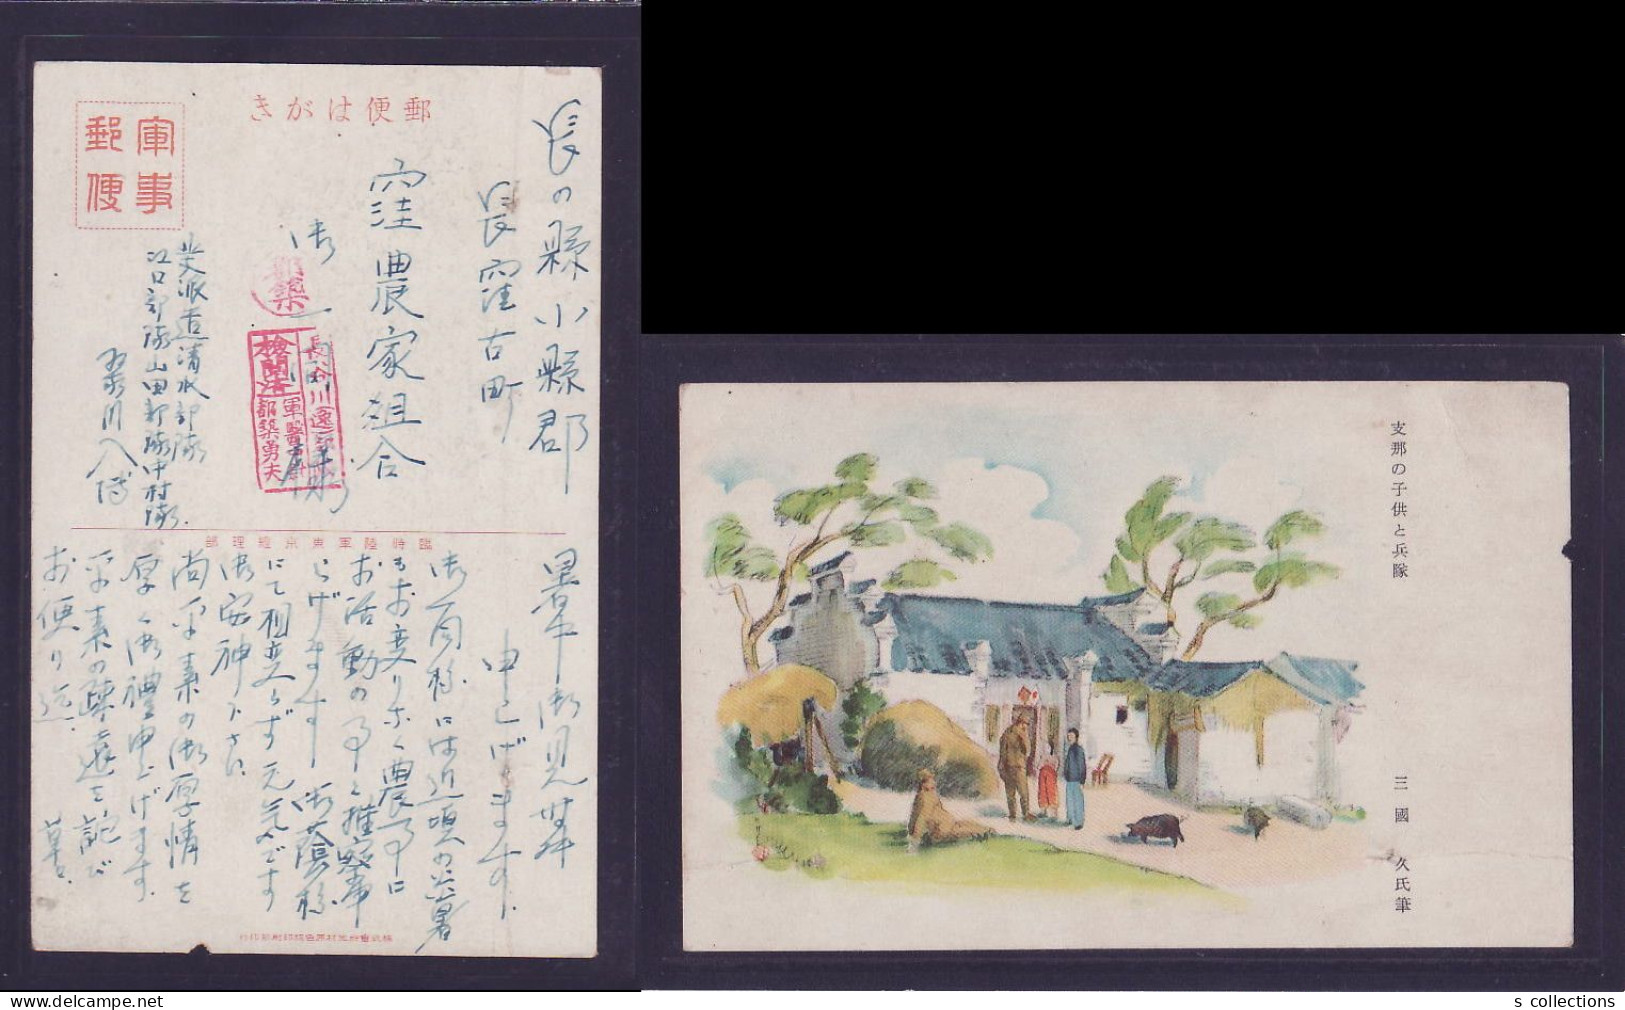 郵便はがき
軍事
郵便
長の縣小縣郡
長窪古町
窪農家組合
御一同様
都築
長谷川逸
檢閲済
軍醫
都築勇夫
北支派遣清水部隊
江口部隊山田部隊中村隊
臨時陸軍東京經理部
暑中御見舞
申し上げます。
御一同様には近頃の炎暑
もお変りなく農事に
お活動の事と推察申
し上げます 御蔭様
にて相変らず元気です
御安神下さい
尚平素の御厚情を
厚く御禮申上げます
平素の疎遠を詫び
お便り迄
草々
支那の子供と兵隊
三國 久氏筆
s collections